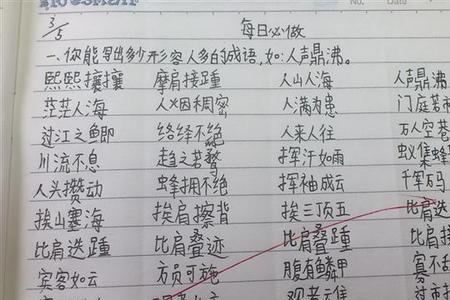 3/5
每日必做
一、你能写出多少形容人多的成语,如:人声鼎沸。
熙熙攘攘 摩肩接踵 人山人海 人声鼎沸
茫茫人海 人烟稠密 人满为患 门庭若
过江之鲫 络绎不绝 人来人往 万人空巷
川流不息 趋之若鹜 挥汗如雨 蚁集蜂
人头攒动 蜂拥不绝 挥袖成云 千军万马
挨山塞海 挨肩擦背 挨三顶五 比肩迭
比肩迭踵 比肩叠迹 比肩叠踵 比肩
宾客如云 方员可施 腹有鳞甲 寡不
观者如